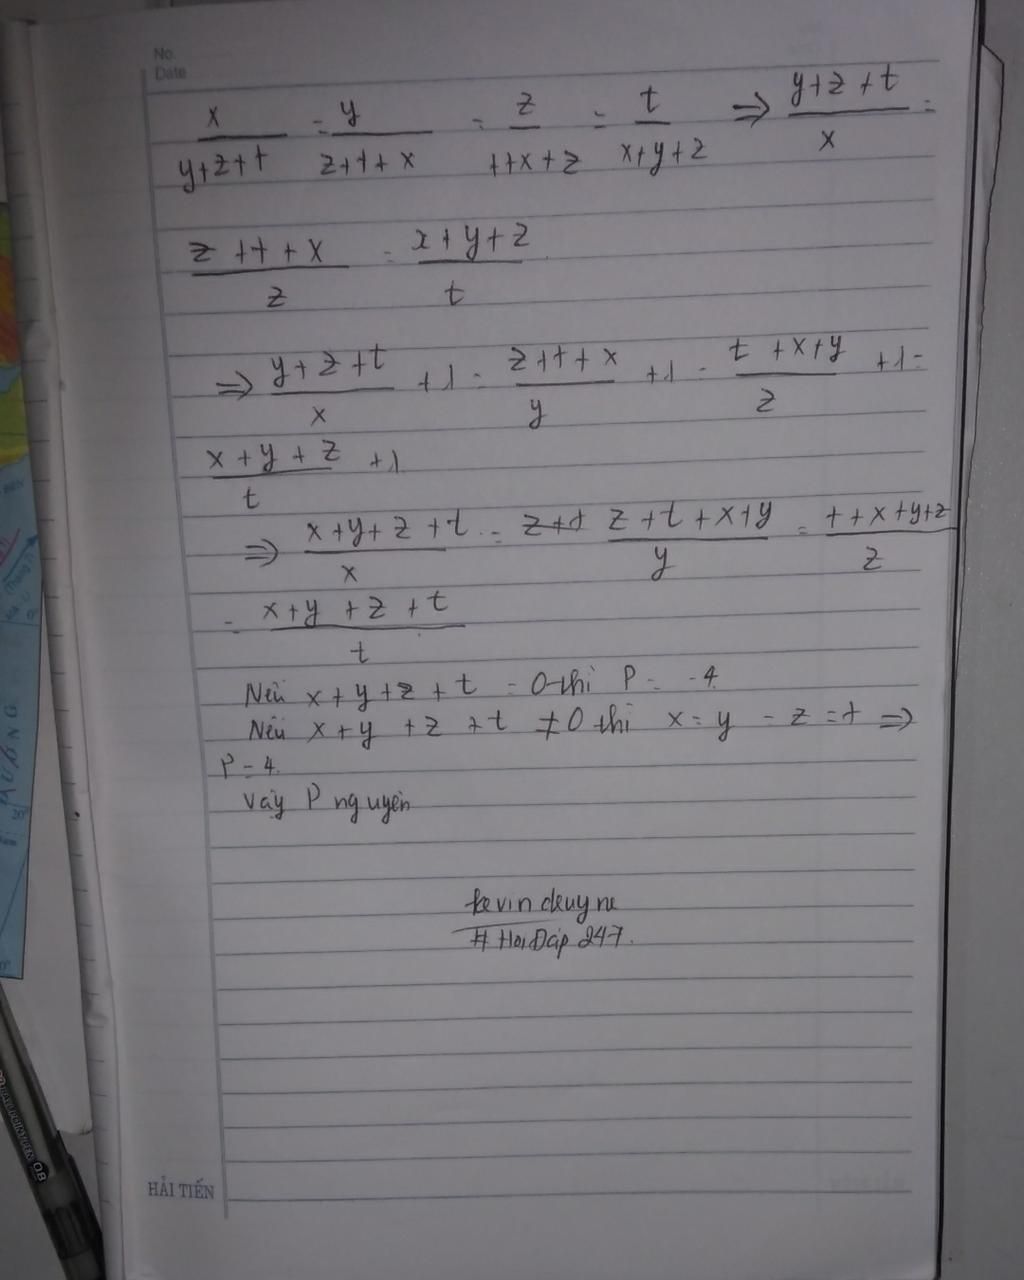 No.
Date
x/(y+z+t) = y/(z+t+x) = z/(t+x+z) = t/(x+y+z) ⇒ (y+z+t)/x =
(z+t+x)/z = (x+y+z)/t
⇒ (y+z+t)/x +1 = (z+t+x)/y +1 = (t+x+y)/z +1 =
(x+y+z)/t +1
⇒ (x+y+z+t)/x = z+t (z+t+x+y)/y = (t+x+y+z)/z
= (x+y+z+t)/t
Nếu x+y+z+t = 0 thì P = -4
Nếu x+y+z+t ≠ 0 thì x=y=z=t ⇒
P = 4.
Vậy P nguyên
# HoiDap 247.
HẢI TIẾN
20°
0°